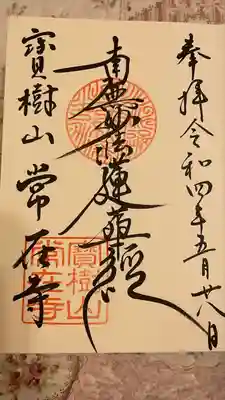 奉拝 令和四年五月廿八日
南無妙法蓮華経
寶樹山 常在寺
寶樹山
常在寺